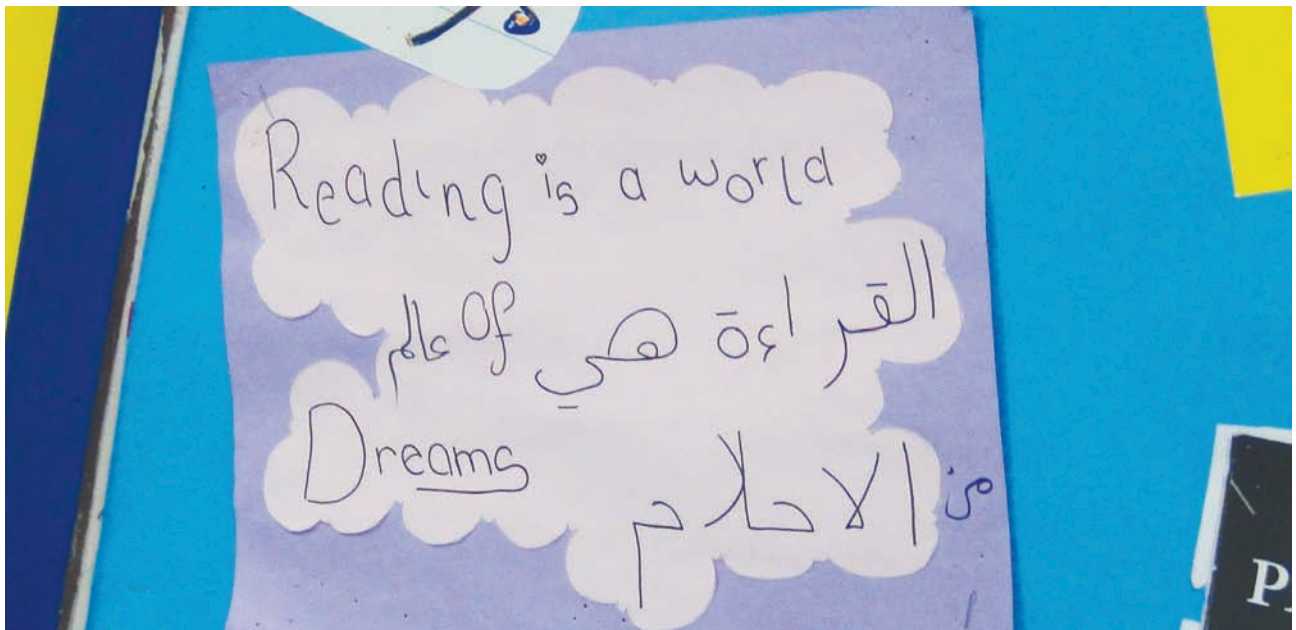 Reading is a world
القراءة هي Of عالم
Dreams من الاحلام